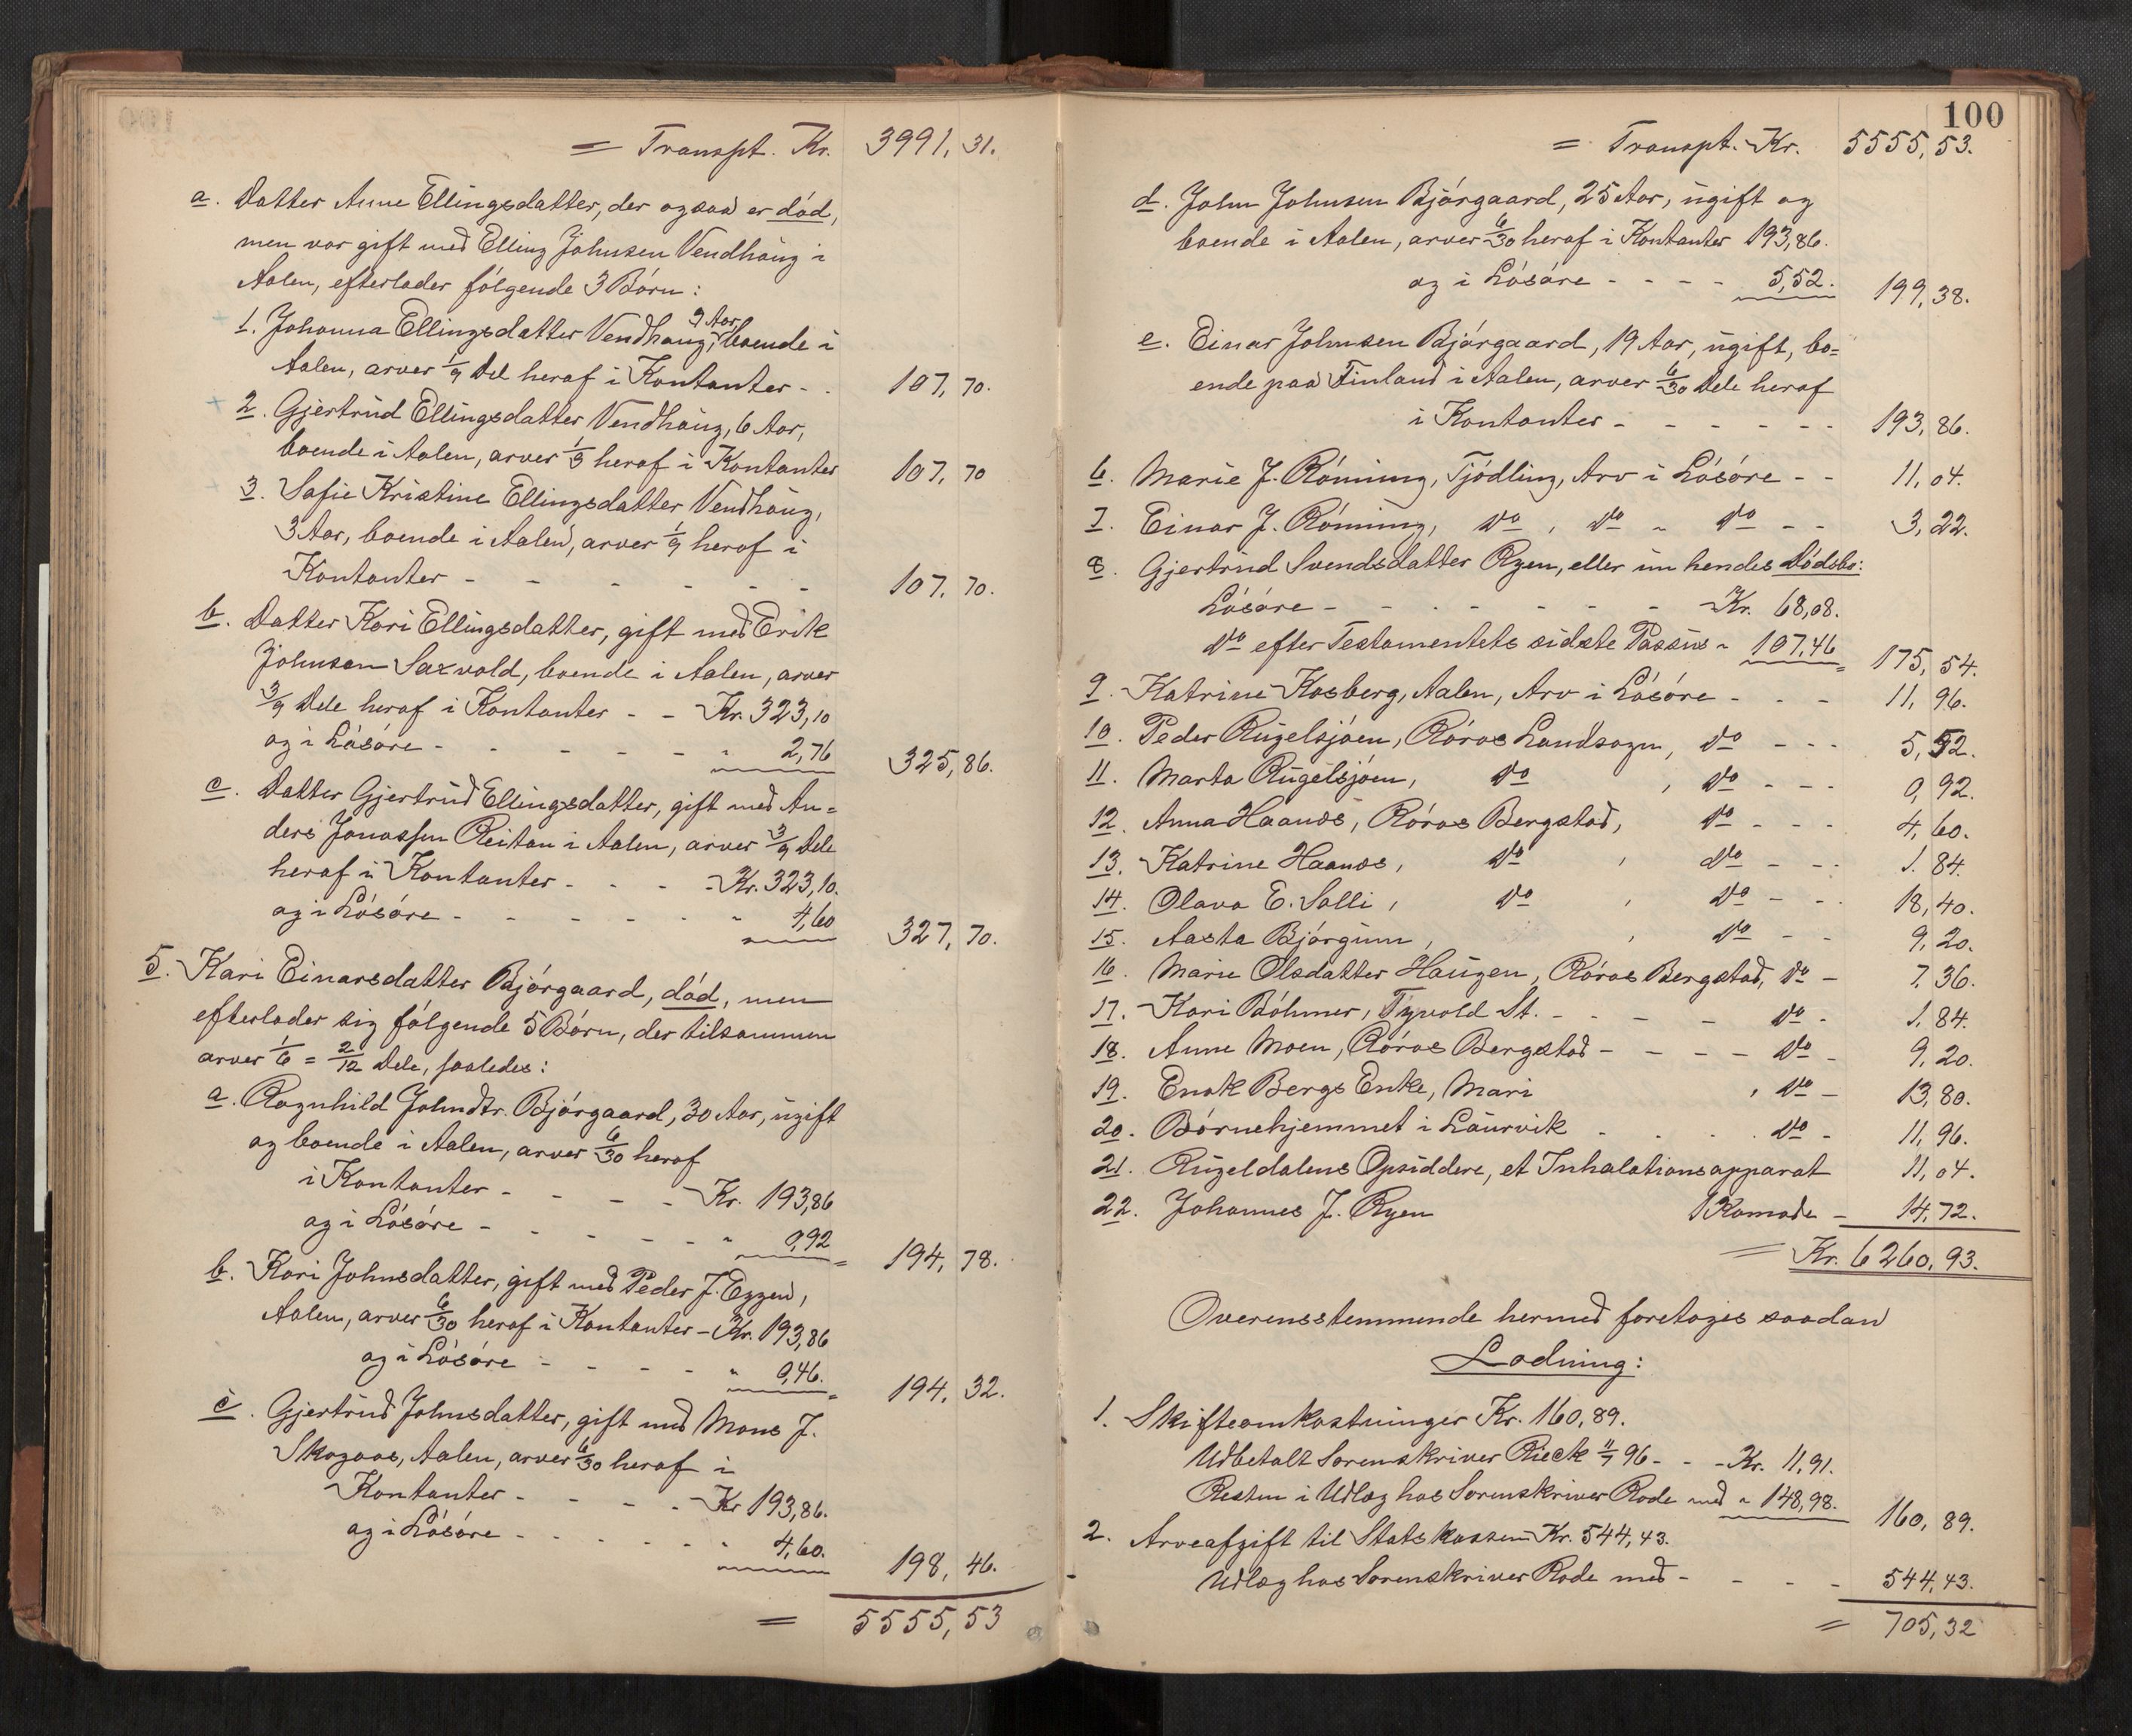 = Transpt. Kr. 3991,31.
a. Datter Anne Ellingsdatter, der ogsaa er død,
men var gift med Elling Johnsen Vendhaug i
Aalen, efterlader følgende 3 Børn:
1. Johanna Ellingsdatter Vendhaug, 9 Aar, boende i
Aalen, arver 1/9 Del heraf i Kontanter - - 107,70.
2. Gjertrud Ellingsdatter Vendhaug, 6 Aar,
boende i Aalen, arver 1/9 heraf i Kontanter 107,70
3. Sofie Kristine Ellingsdatter Vendhaug,
3 Aar, boende i Aalen, arver 1/9 heraf i
Kontanter - - - - - - 107,70.
b. Datter Kari Ellingsdatter, gift med Erik
Johnsen Saxvold, boende i Aalen, arver
3/9 Dele heraf i Kontanter - - Kr. 323,10
og i Løsøre - - - - - - " 2,76 325,86.
c. Datter Gjertrud Ellingsdatter, gift med An-
ders Jonassen Reitan i Aalen, arver 3/9 Dele
heraf i Kontanter - - - - Kr. 323,10.
og i Løsøre - - - - - - " 4,60 327,70.
5. Kari Einarsdatter Bjørgaard, død, men
efterlader sig følgende 5 Børn, der tilsammen
arver 1/6 = 2/12 Dele, saaledes:
a. Ragnhild Johndtr. Bjørgaard, 30 Aar, ugift
og boende i Aalen, arver 6/30 heraf
i Kontanter - - - - Kr. 193,86
og i Løsøre - - - - - " 0,92 = 194,78.
b. Kari Johnsdatter, gift med Peder J. Eggen,
Aalen, arver 6/30 heraf i Kontanter - Kr. 193,86
og i Løsøre - - - - " 0,46. = 194,32.
c. Gjertrud Johnsdatter, gift med Mons J.
Skogaas, Aalen, arver 6/30 heraf i
Kontanter - - - - Kr 193,86.
og i Løsøre - - - - - " 4,60. 198,46.
= 5555,53
100
= Transpt. Kr. 5555,53.
d. John Johnsen Bjørgaard, 25 Aar, ugift og
boende i Aalen, arver 6/30 heraf i Kontanter 193,86.
og i Løsøre - - - - 5,52. 199,38.
e. Einar Johnsen Bjørgaard, 19 Aar, ugift, bo=
ende paa Finland i Aalen, arver 6/30 Dele heraf
i Kontanter - - - - - - 193,86.
6. Marie J. Rønning, Tjødling, Arv i Løsøre - - 11,04.
7. Einar J. Rønning, do , do " do - - 3,22.
8. Gjertrud Svendsdatter Ryen, eller nu hendes Dødsbo:
Løsøre - - - - - - - Kr. 68,08.
do efter Testamentets sidste Passus " 107,46 = 175,54.
9. Katrine Kosberg, Aalen, Arv i Løsøre - - - 11,96.
10. Peder Rugelsjøen, Røros Landsogn, do - - - 5,52.
11. Marta Rugelsjøen, do , do - - - 0,92.
12. Anna Haanæs, Røros Bergstad, do - - - 4,60.
13. Katrine Haanæs, do , do - - - 1.84.
14. Olava E. Solli, do , do - - - 18,40.
15. Aasta Bjørgum, , do - - 9,20.
16. Marie Olsdatter Haugen, Røros Bergstad, do - 7,36.
17. Kari Bøhmer, Tyvold St. - - - - do - 1,84.
18. Anne Moen, Røros Bergstad - - - - do - 9,20.
19. Enok Bergs Enke, Mari , do - 13,80.
20. Børnehjemmet i Laurvik - - - - do - 11,96.
21. Rugeldalens Opsiddere, et Inhalationsapparat 11,04.
22. Johannes J. Ryen 1 Komode - 14,72.
= Kr. 6260,93.
Overensstemmende hermed foretages saadan
Lodning:
1. Skifteomkostninger Kr. 160,89.
Udbetalt Sorenskriver Rieck 11/7 96 - - - Kr. 11,91.
Resten i Udlæg hos Sorenskriver Rode med " 148,98. 160,89.
2. Arveafgift til Statskassen Kr. 544,43.
Udlæg hos Sorenskriver Rode med - - - - 544,43.
= 705,32